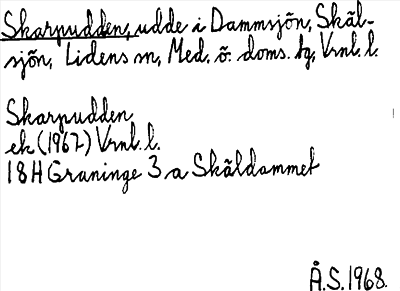 Skarpudden, udde i Dammsjön, Skäl-
sjön, Lidens sn, Med. ö. doms. tg, Vrnl. l.
Skarpudden
ek (1967) Vrnl. l.
18H Graninge 3 a Skäldammet
Å.S. 1968.